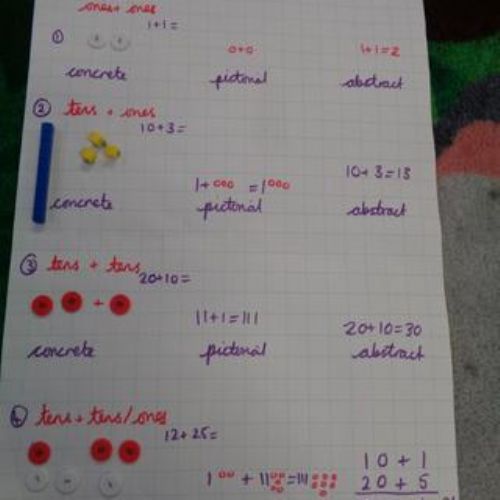 ones + ones
① 1+1=
o+o
1+1=2
concrete pictorial abstract
② tens + ones
10+3=
1+ooo = 1ooo
10+3=13
concrete pictorial abstract
③ tens + tens
20+10=
+
11+1=111
20+10=30
concrete pictorial abstract
④ tens + tens/ones
12+25=
1oo + 11ooooo = 111ooooooo
10 + 1
20 + 5